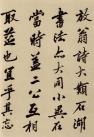 放翁詩大類石湖
書法上大同小異在
當時蓋二公互相
取益也宜乎其志